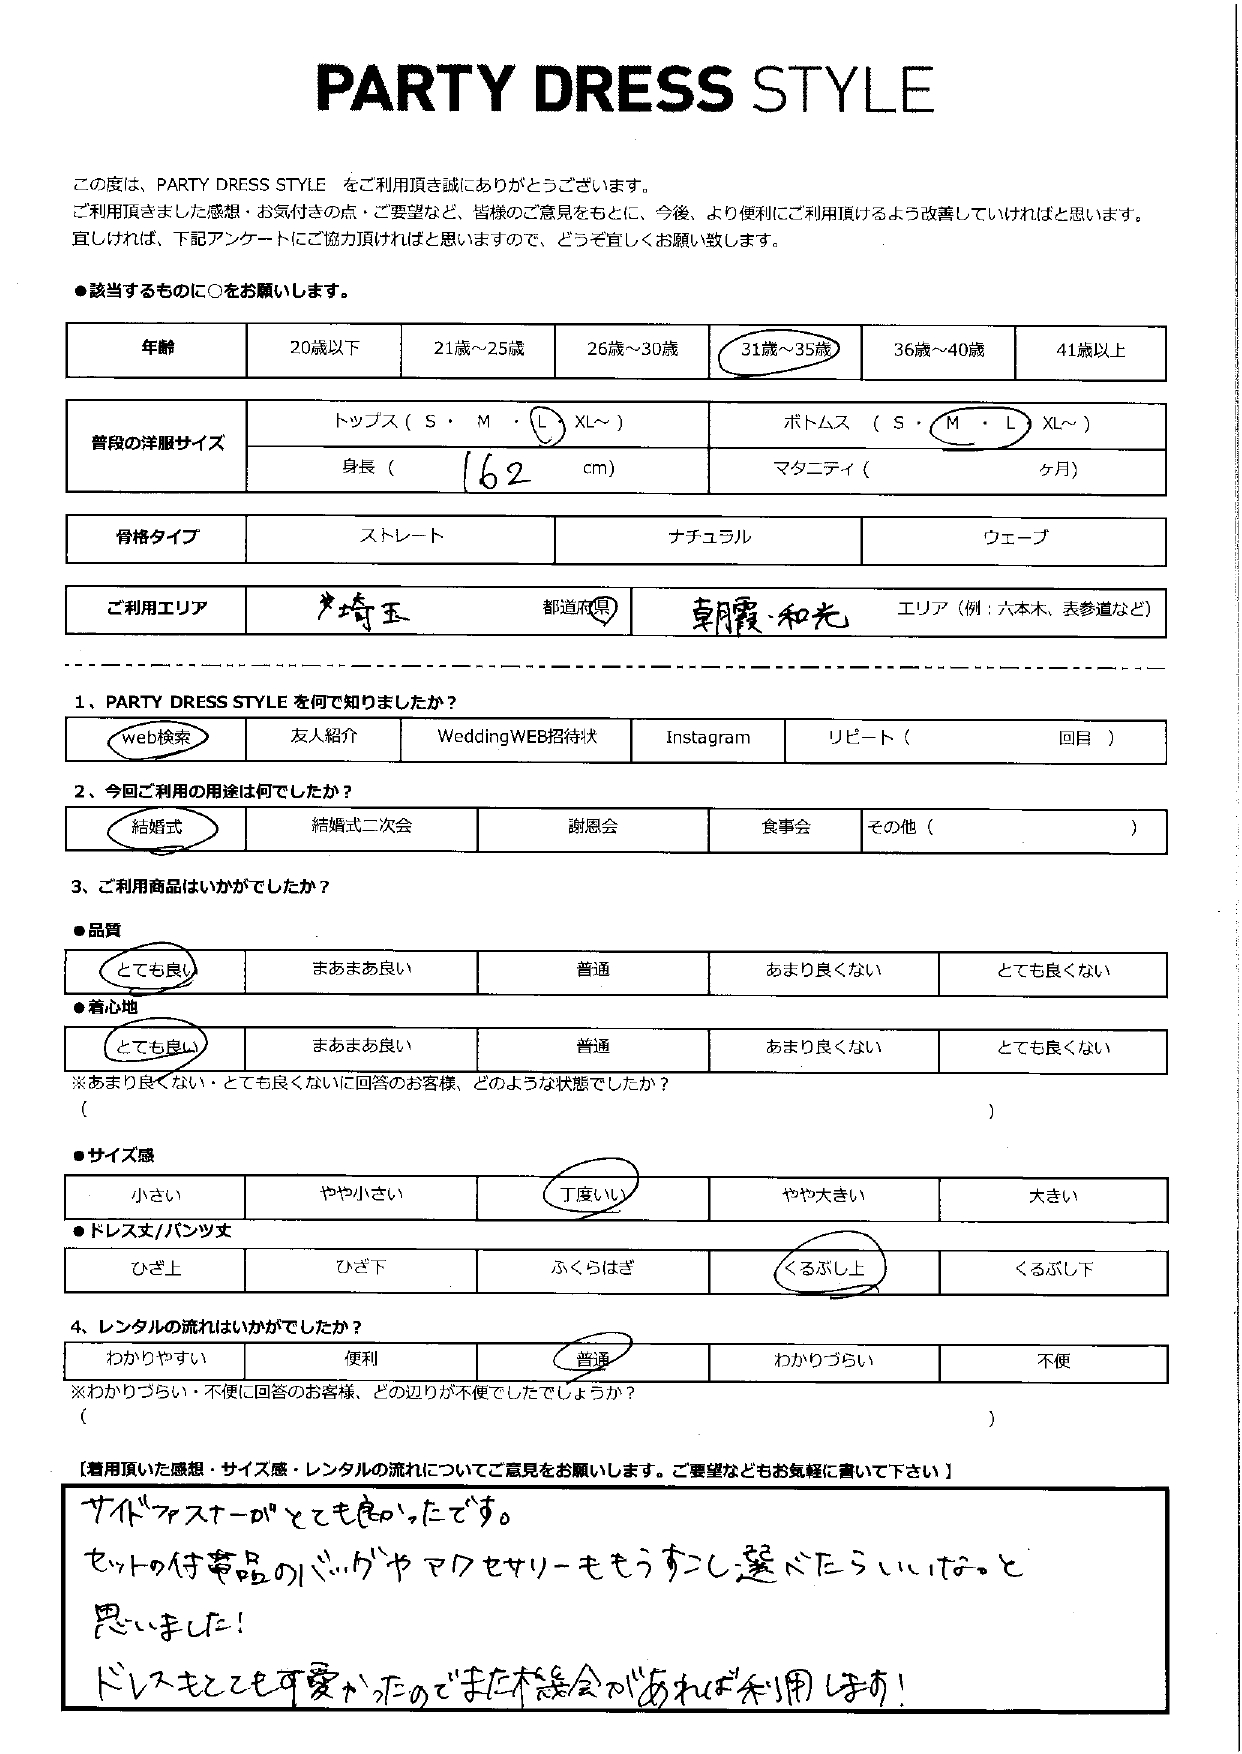 PARTY DRESS STYLE
この度は、PARTY DRESS STYLE をご利用頂き誠にありがとうございます。
ご利用頂きました感想・お気付きの点・ご要望など、皆様のご意見をもとに、今後、より便利にご利用頂けるよう改善していければと思います。
宜しければ、下記アンケートにご協力頂ければと思いますので、どうぞ宜しくお願い致します。
●該当するものに○をお願いします。
年齢 20歳以下 21歳～25歳 26歳～30歳 31歳～35歳 36歳～40歳 41歳以上
普段の洋服サイズ
トップス ( S ・ M ・ L ・ XL～ ) ボトムス ( S ・ M ・ L ・ XL～ )
身長 ( 162 cm) マタニティ ( ヶ月)
骨格タイプ ストレート ナチュラル ウェーブ
ご利用エリア 埼玉 都道府県 朝霞・和光 エリア（例：六本木、表参道など）
1、PARTY DRESS STYLE を何で知りましたか？
web検索 友人紹介 WeddingWEB招待状 Instagram リピート ( 回目 )
2、今回ご利用の用途は何でしたか？
結婚式 結婚式二次会 謝恩会 食事会 その他 ( )
3、ご利用商品はいかがでしたか？
●品質
とても良い まあまあ良い 普通 あまり良くない とても良くない
●着心地
とても良い まあまあ良い 普通 あまり良くない とても良くない
※あまり良くない・とても良くないに回答のお客様、どのような状態でしたか？
( )
●サイズ感
小さい やや小さい 丁度いい やや大きい 大きい
●ドレス丈/パンツ丈
ひざ上 ひざ下 ふくらはぎ くるぶし上 くるぶし下
4、レンタルの流れはいかがでしたか？
わかりやすい 便利 普通 わかりづらい 不便
※わかりづらい・不便に回答のお客様、どの辺りが不便でしたでしょうか？
( )
【着用頂いた感想・サイズ感・レンタルの流れについてご意見をお願いします。ご要望などもお気軽に書いて下さい】
サイドファスナーがとても良かったです。
セットの付帯品のバッグやアクセサリーももうすこし選べたらいいな。と
思いました！
ドレスもとても可愛かったのでまた機会があれば利用します！